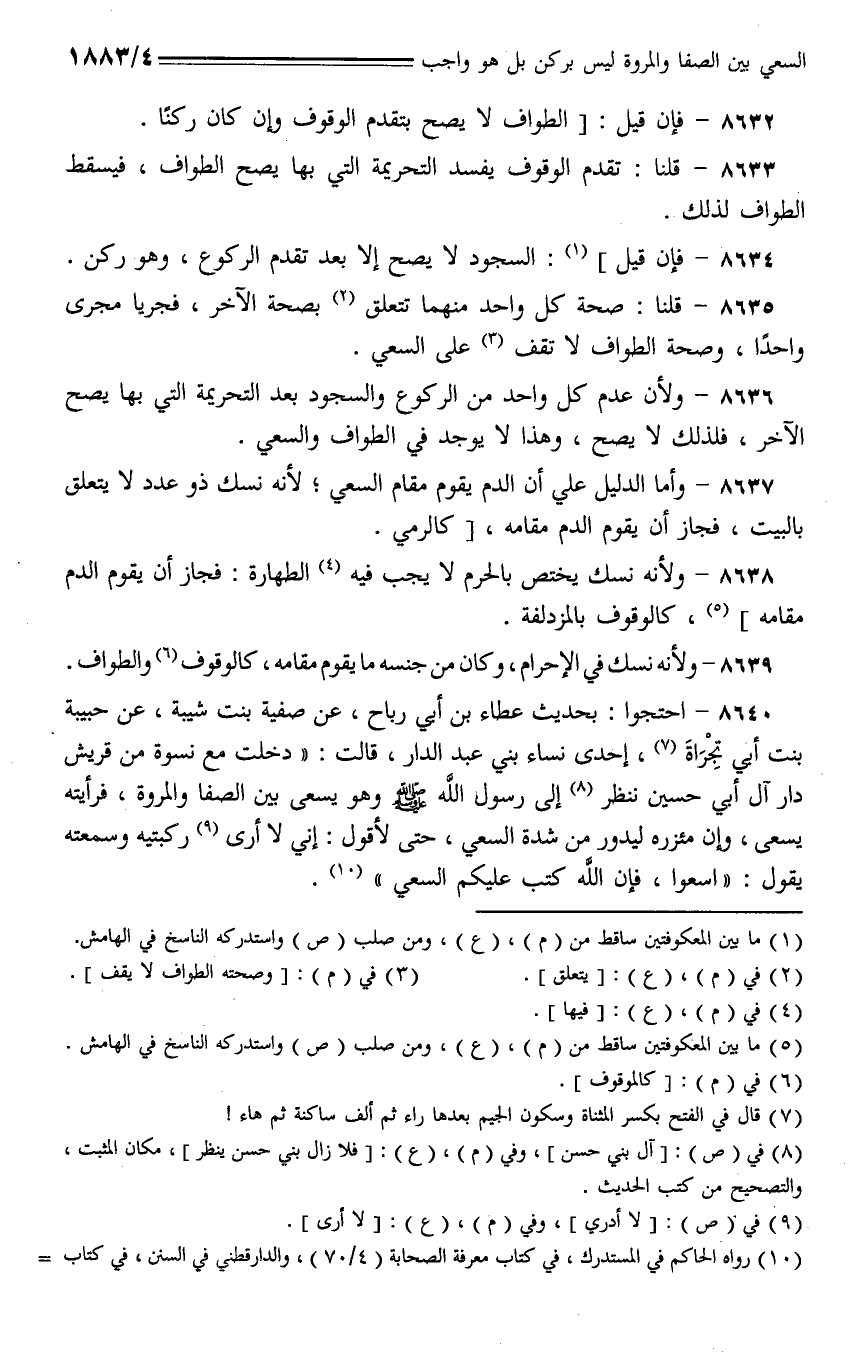 السعي بين الصفا والمروة ليس بركن بل هو واجب ١٨٨٣/٤
٨٦٣٢ - فإن قيل : [ الطواف لا يصح بتقدم الوقوف وإن كان ركنًا .
٨٦٣٣ - قلنا : تقدم الوقوف يفسد التحريمة التي بها يصح الطواف ، فيسقط
الطواف لذلك .
٨٦٣٤ - فإن قيل ] (١) : السجود لا يصح إلا بعد تقدم الركوع ، وهو ركن .
٨٦٣٥ - قلنا : صحة كل واحد منهما تتعلق (٢) بصحة الآخر ، فجريا مجرى
واحدًا ، وصحة الطواف لا تقف (٣) على السعي .
٨٦٣٦ - ولأن عدم كل واحد من الركوع والسجود بعد التحريمة التي بها يصح
الآخر ، فلذلك لا يصح ، وهذا لا يوجد في الطواف والسعي .
٨٦٣٧ - وأما الدليل علي أن الدم يقوم مقام السعي ؛ لأنه نسك ذو عدد لا يتعلق
بالبيت ، فجاز أن يقوم الدم مقامه ، [ كالرمي .
٨٦٣٨ - ولأنه نسك يختص بالحرم لا يجب فيه (٤) الطهارة : فجاز أن يقوم الدم
مقامه ] (٥) ، كالوقوف بالمزدلفة .
٨٦٣٩ - ولأنه نسك في الإحرام ، وكان من جنسه ما يقوم مقامه ، كالوقوف (٦) والطواف .
٨٦٤٠ - احتجوا : بحديث عطاء بن أبي رباح ، عن صفية بنت شيبة ، عن حبيبة
بنت أبي تِجْرَاةَ (٧) ، إحدى نساء بني عبد الدار ، قالت : « دخلت مع نسوة من قريش
دار آل أبي حسين ننظر (٨) إلى رسول اللَّه ﷺ وهو يسعى بين الصفا والمروة ، فرأيته
يسعى ، وإن مئزره ليدور من شدة السعي ، حتى لأقول : إني لا أرى (٩) ركبتيه وسمعته
يقول : « اسعوا ، فإن اللَّه كتب عليكم السعي » (١٠) .
(١) ما بين المعكوفتين ساقط من ( م ) ، ( ع ) ، ومن صلب ( ص ) واستدركه الناسخ في الهامش.
(٢) في ( م ) ، ( ع ) : [ يتعلق ] . (٣) في ( م ) : [ وصحته الطواف لا يقف ] .
(٤) في ( م ) ، ( ع ) : [ فيها ] .
(٥) ما بين المعكوفتين ساقط من ( م ) ، ( ع ) ، ومن صلب ( ص ) واستدركه الناسخ في الهامش .
(٦) في ( م ) : [ كالموقوف ] .
(٧) قال في الفتح بكسر المثناة وسكون الجيم بعدها راء ثم ألف ساكنة ثم هاء !
(٨) في ( ص ) : [ آل بني حسن ] ، وفي ( م ) ، ( ع ) : [ فلا زال بني حسن ينظر ] ، مكان المثبت ،
والتصحيح من كتب الحديث .
(٩) في ( ص ) : [ لا أدري ] ، وفي ( م ) ، ( ع ) : [ لا أرى ] .
(١٠) رواه الحاكم في المستدرك ، في كتاب معرفة الصحابة ( ٧٠/٤ ) ، والدارقطني في السنن ، في كتاب =